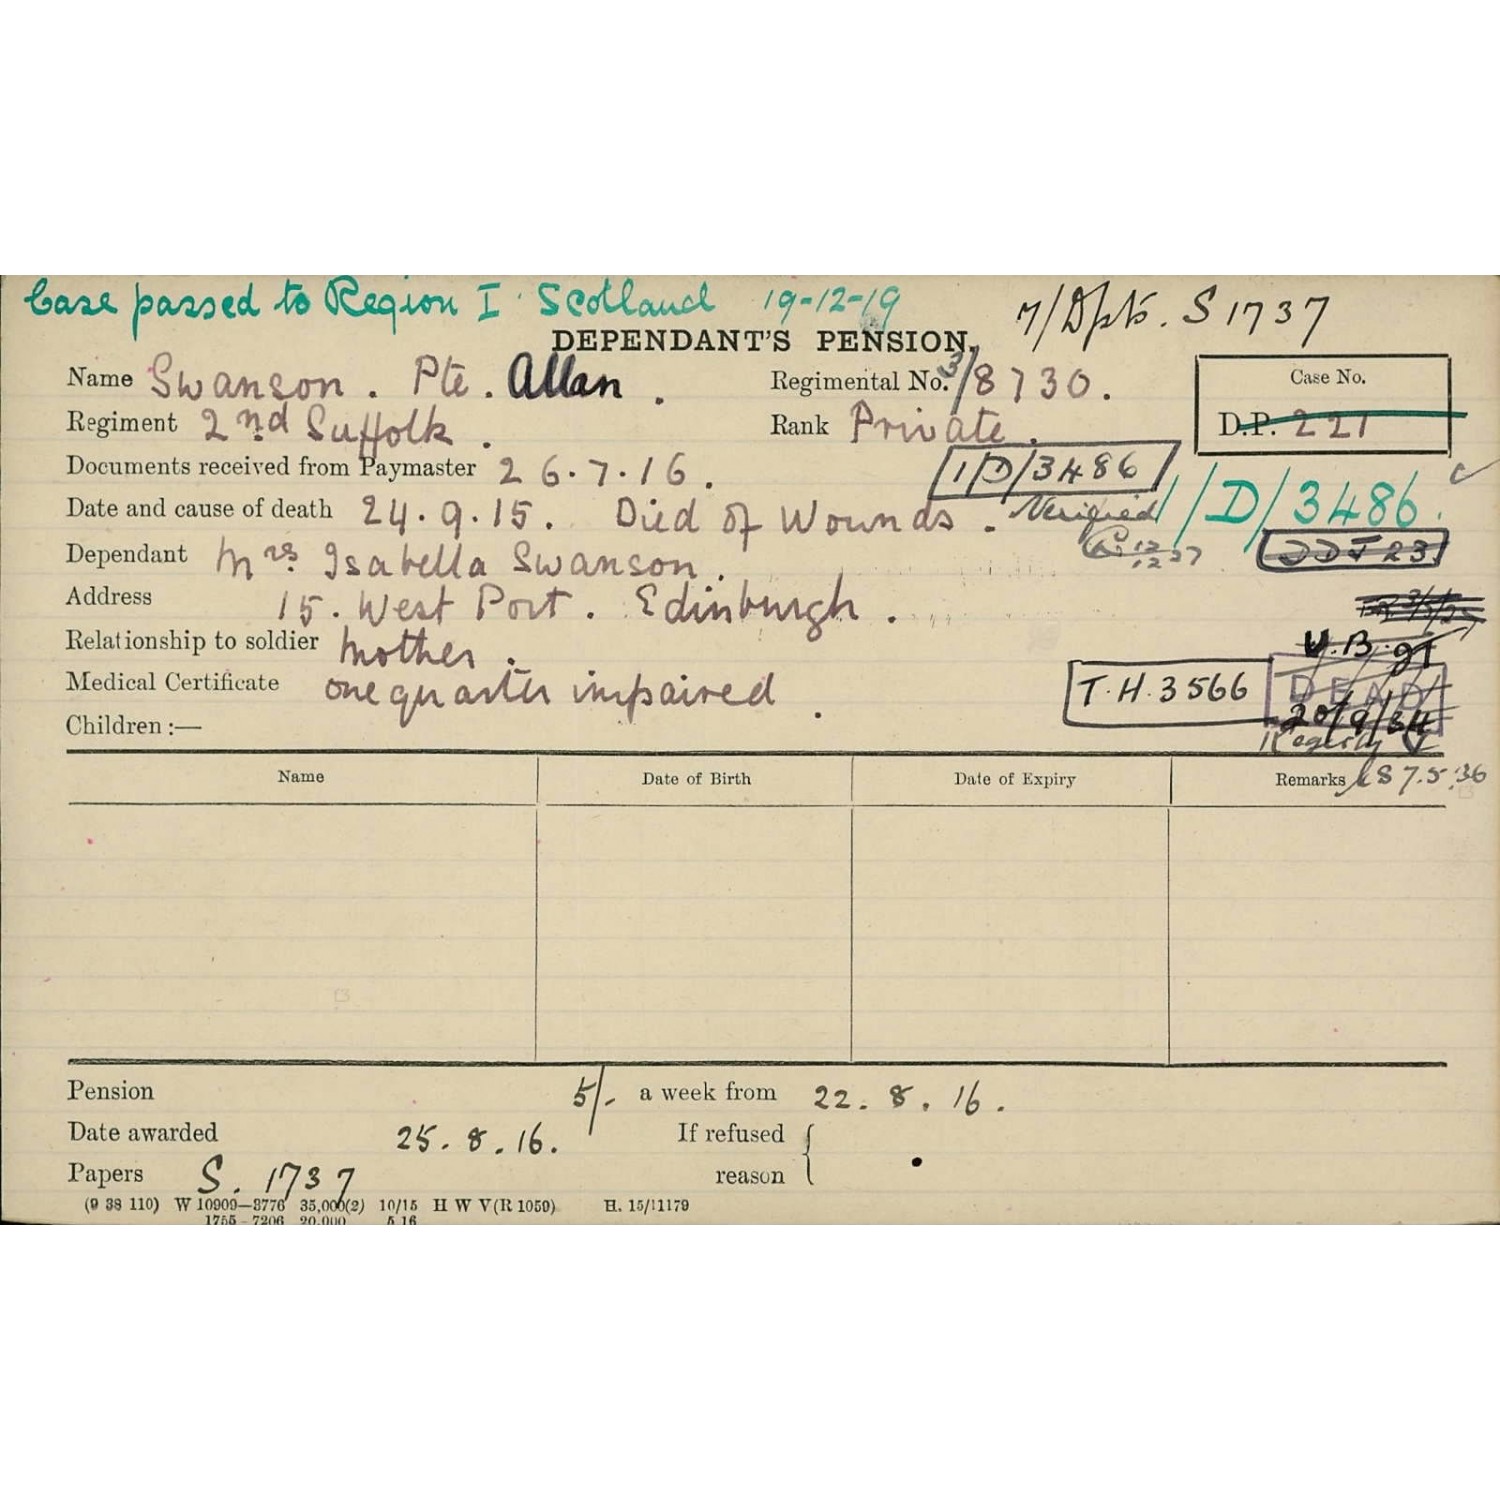 Case passed to Region I Scotland 19-12-19
7/Dpts. S 1737
DEPENDANT'S PENSION.
Name Swanson. Pte. Allan.
Regimental No. 3/8730.
Case No.
D.P. 221
Regiment 2nd Suffolk.
Rank Private.
Documents received from Paymaster 26.7.16.
1/D/3486
1/D/3486.
Date and cause of death 24.9.15. Died of Wounds.
Verified
12/12 27
Dependant Mrs. Isabella Swanson.
Address 15. West Port. Edinburgh.
Relationship to soldier Mother.
Medical Certificate one quarter impaired.
T.H.3566
DEAD
20/9/34
Children :—
Name Date of Birth Date of Expiry Remarks
7.5.36
Pension 5/- a week from 22.8.16.
Date awarded 25.8.16. If refused
reason
Papers S. 1737
(9 38 110) W 10909—3776 35,000(2) 10/15 H W V(R 1059) H. 15/1179
1755 - 7206 20,000 5 16